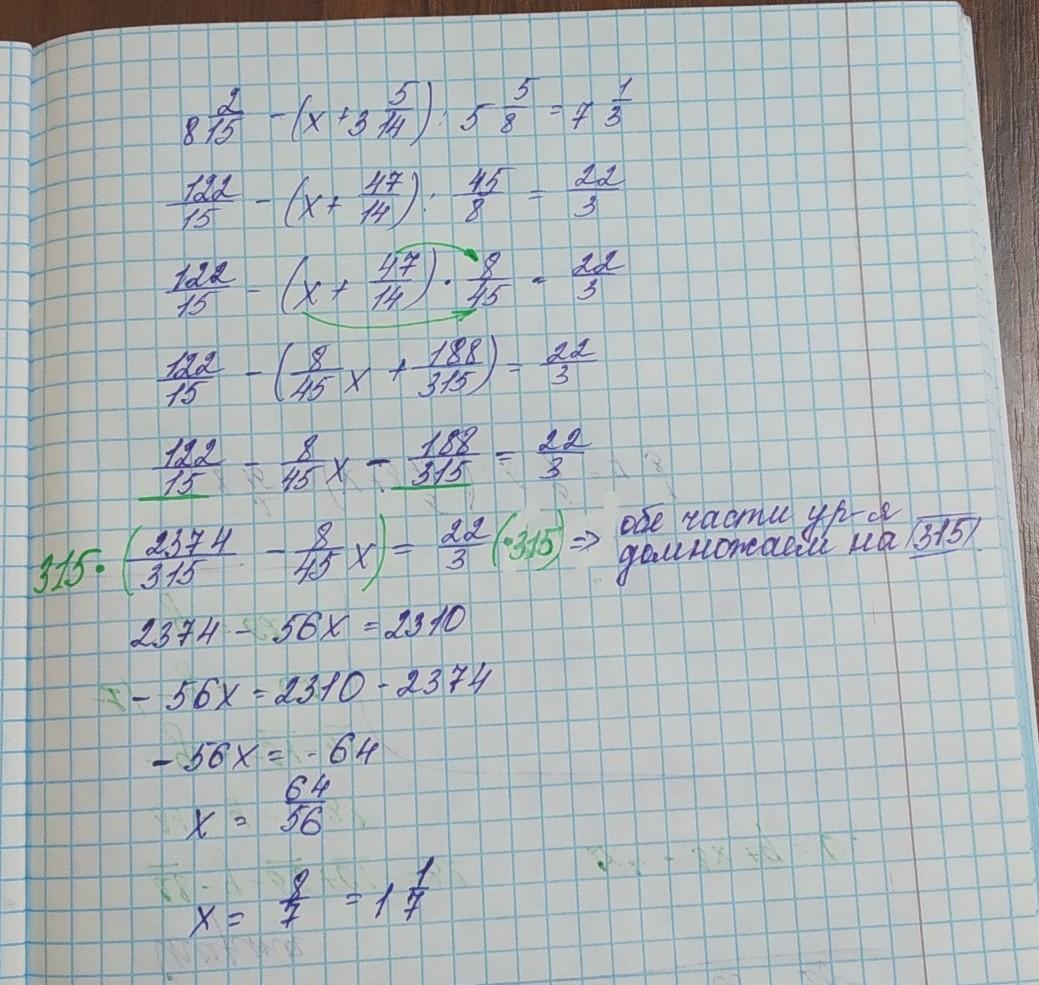 8 2/15 - (x + 3 5/14) : 5 5/8 = 7 1/3
122/15 - (x + 47/14) : 45/8 = 22/3
122/15 - (x + 47/14) · 8/45 = 22/3
122/15 - (8/45 x + 188/315) = 22/3
122/15 - 8/45 x - 188/315 = 22/3
315 · (2374/315 - 8/45 x) = 22/3 (·315) => обе части ур-я
домножаем на 315
2374 - 56x = 2310
- 56x = 2310 - 2374
- 56x = - 64
x = 64/56
x = 8/7 = 1 1/7